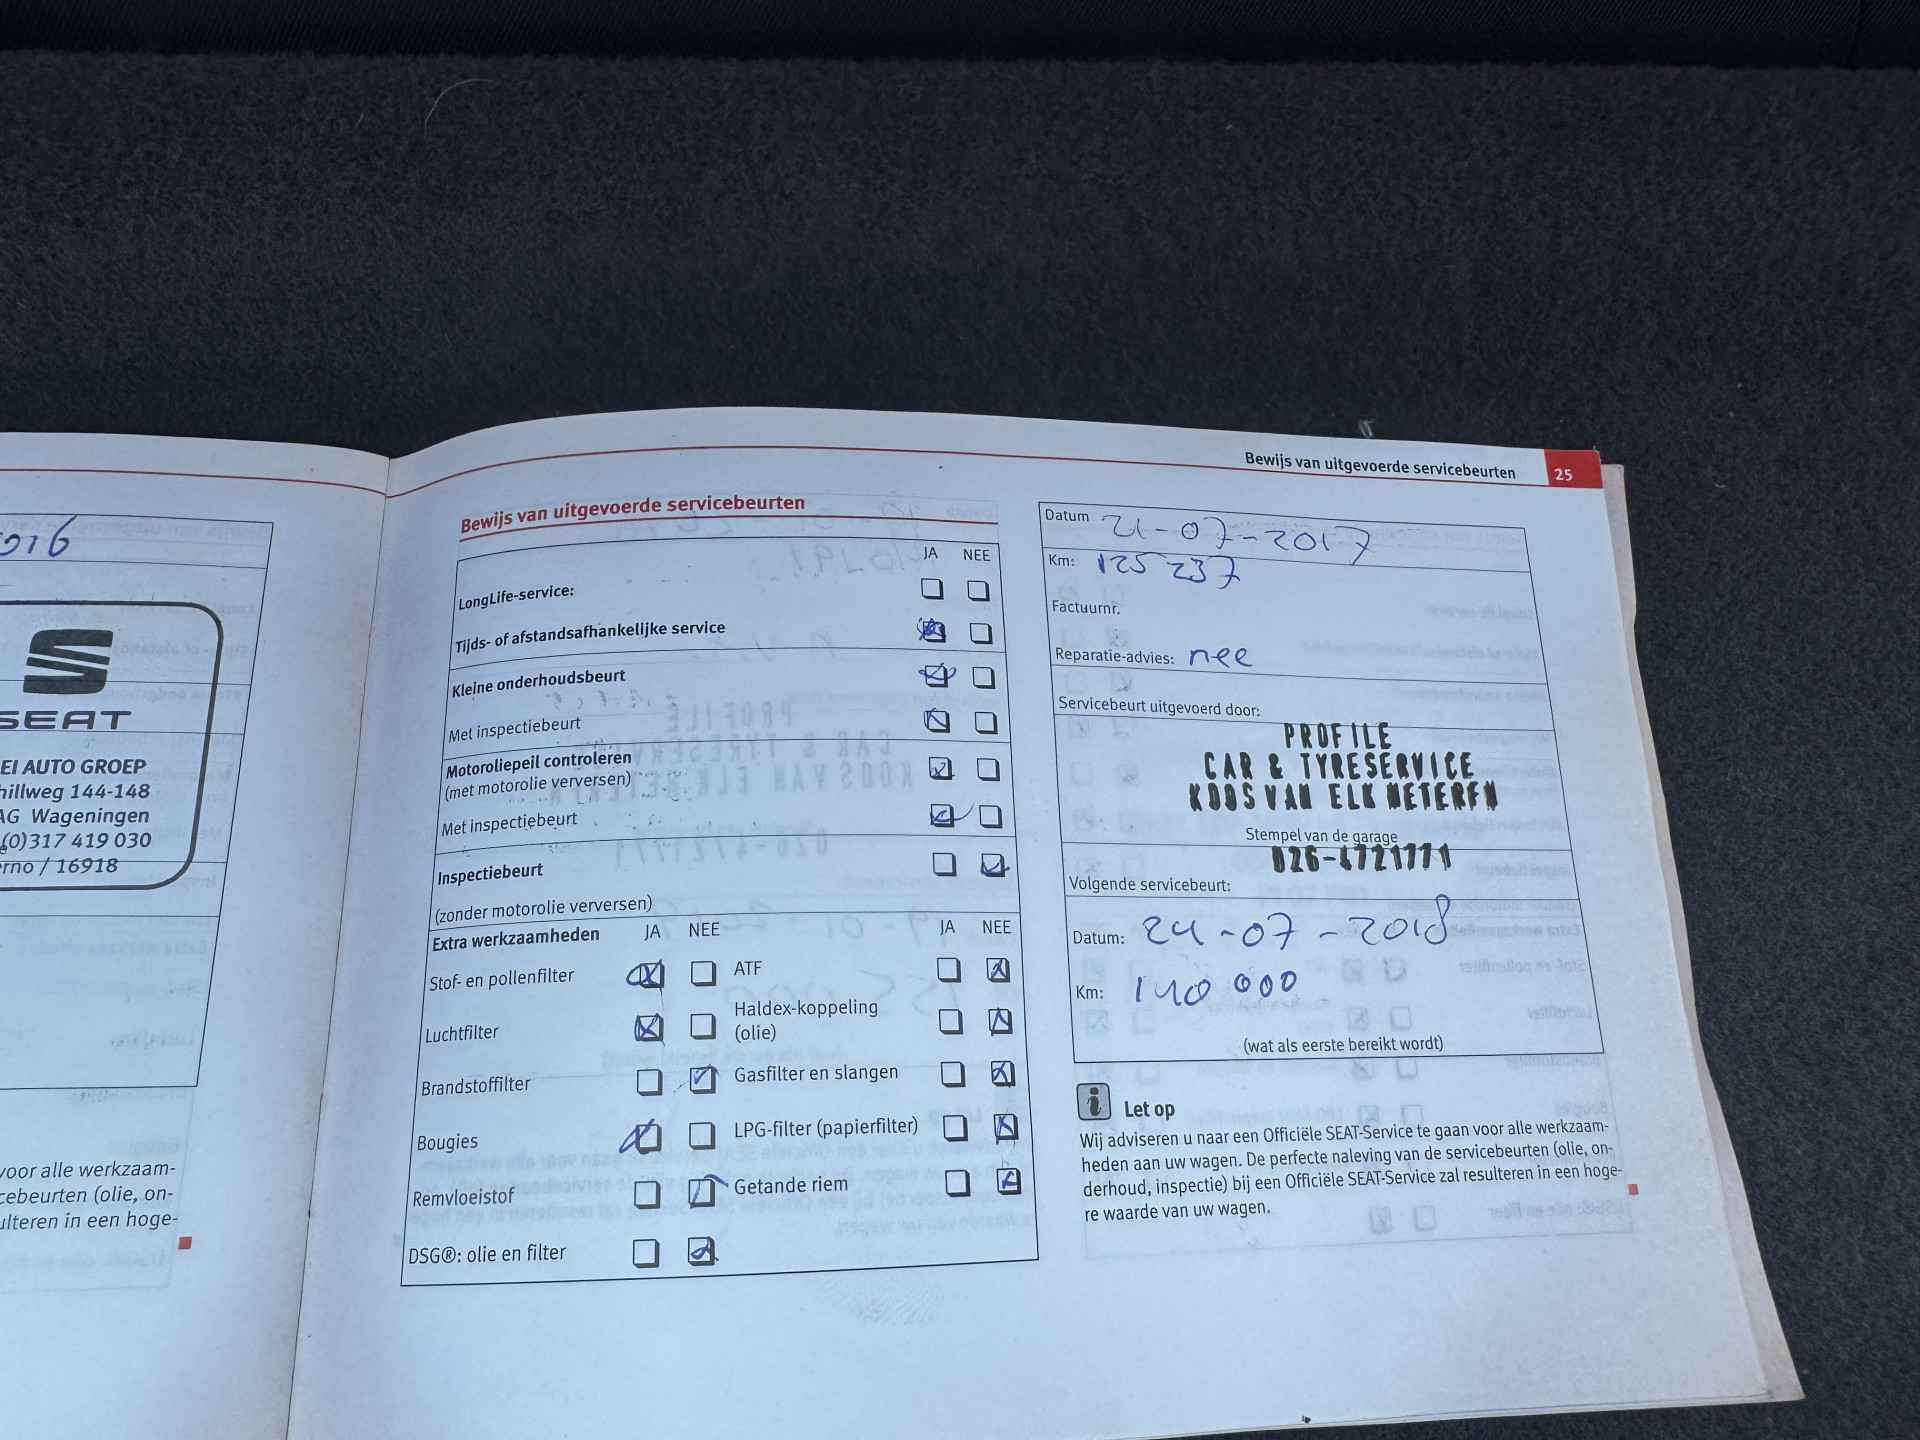 2016
SEAT
EI AUTO GROEP
hillweg 144-148
AG Wageningen
(0)317 419 030
erno / 16918
voor alle werkzaam-
cebeurten (olie, on-
ulteren in een hoge-
Bewijs van uitgevoerde servicebeurten 25
Bewijs van uitgevoerde servicebeurten
JA NEE
LongLife-service:
Tijds- of afstandsafhankelijke service
Kleine onderhoudsbeurt
Met inspectiebeurt
Motoroliepeil controleren
(met motorolie verversen)
Met inspectiebeurt
Inspectiebeurt
(zonder motorolie verversen)
Extra werkzaamheden JA NEE JA NEE
Stof- en pollenfilter ATF
Luchtfilter Haldex-koppeling
(olie)
Brandstoffilter Gasfilter en slangen
Bougies LPG-filter (papierfilter)
Remvloeistof Getande riem
DSG®: olie en filter
Datum 21-07-2017
Km: 125 237
Factuurnr.
Reparatie-advies: nee
Servicebeurt uitgevoerd door:
PROFILE
CAR & TYRESERVICE
KOOS VAN ELK HETEREN
Stempel van de garage
026-4721771
Volgende servicebeurt:
Datum: 24-07-2018
Km: 140 000
(wat als eerste bereikt wordt)
i Let op
Wij adviseren u naar een Officiële SEAT-Service te gaan voor alle werkzaam-
heden aan uw wagen. De perfecte naleving van de servicebeurten (olie, on-
derhoud, inspectie) bij een Officiële SEAT-Service zal resulteren in een hoge-
re waarde van uw wagen.